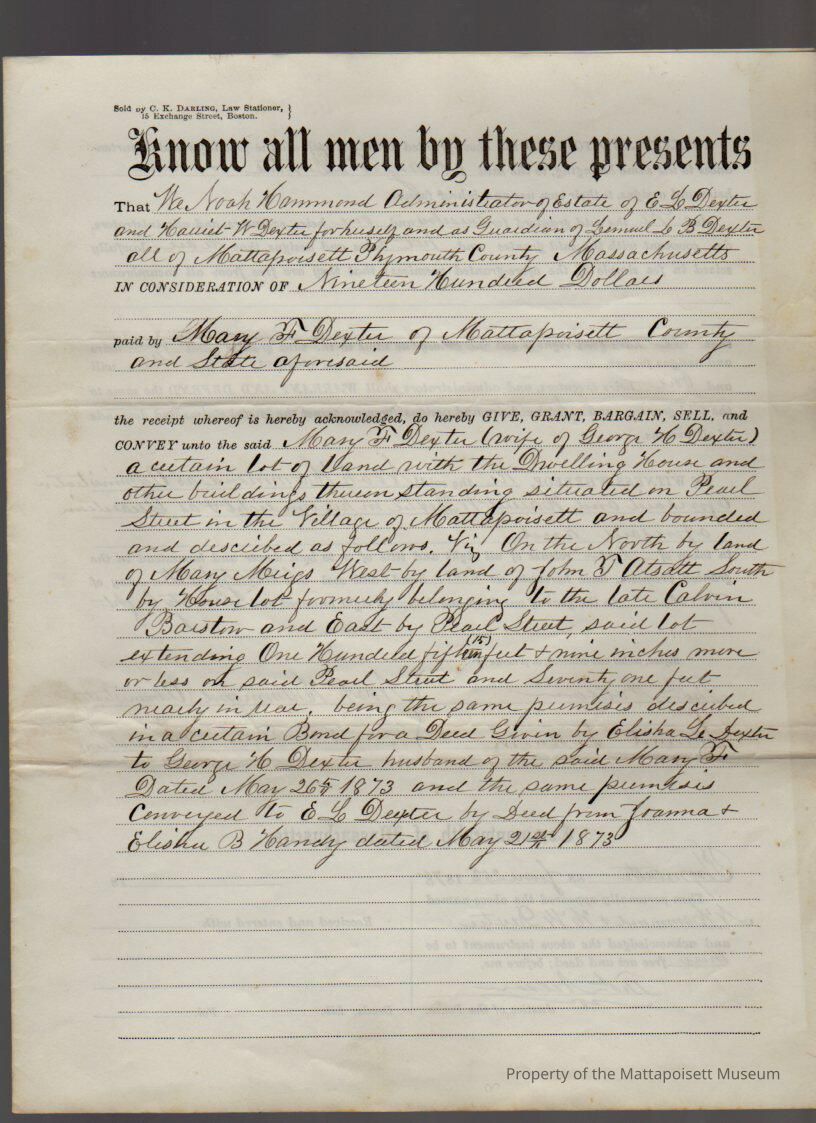 Sold by C. K. DARLING, Law Stationer, }
15 Exchange Street, Boston. }
Know all men by these presents
That We Noah Hammond Administrator of Estate of E L Dexter
and Harriet W Dexter for herself and as Guardian of Lemuel L B Dexter
all of Mattapoisett Plymouth County Massachusetts
IN CONSIDERATION OF Nineteen Hundred Dollars
paid by Mary F Dexter of Mattapoisett County
and State aforesaid
the receipt whereof is hereby acknowledged, do hereby GIVE, GRANT, BARGAIN, SELL, and
CONVEY unto the said Mary F Dexter (wife of George H Dexter)
a certain lot of land with the Dwelling House and
other buildings thereon standing situated on Pearl
Street in the Village of Mattapoisett and bounded
and described as follows. Viz On the North by land
of Mary Meigs West by land of John T Atsatt South
by House lot formerly belonging to the late Calvin
Barstow and East by Pearl Street, said lot
(15)
extending One Hundred fifteen feet & nine inches more
or less on said Pearl Street and Seventy one feet
nearly in rear. being the same premises described
in a certain Bond for a Deed Given by Elisha L Dexter
to George H Dexter husband of the said Mary F
Dated May 26th 1873 and the same premises
Conveyed to E L Dexter by Deed from Joanna &
Elisha B Handy dated May 21st 1873
Property of the Mattapoisett Museum